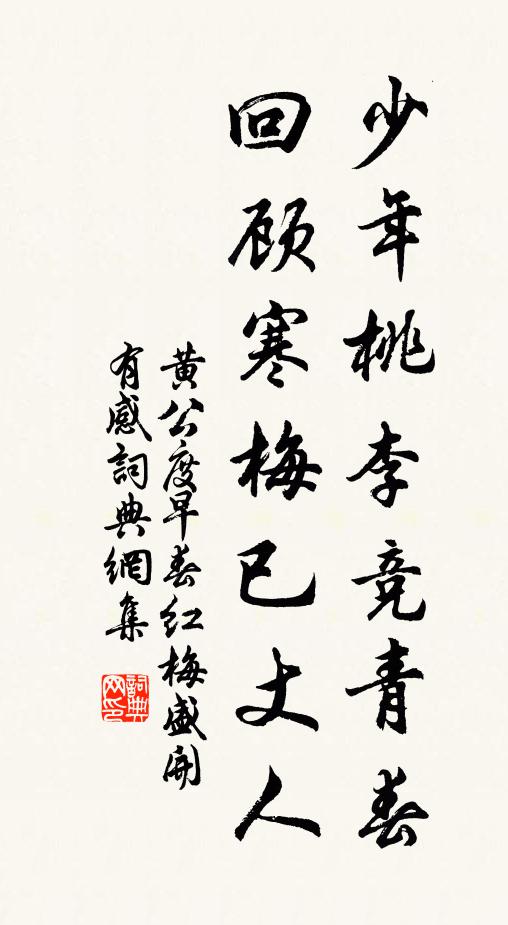 少年桃李竞青春
回顾寒梅已丈人
黄公度早春红梅盛开
有感詞典網集
詞典
网印